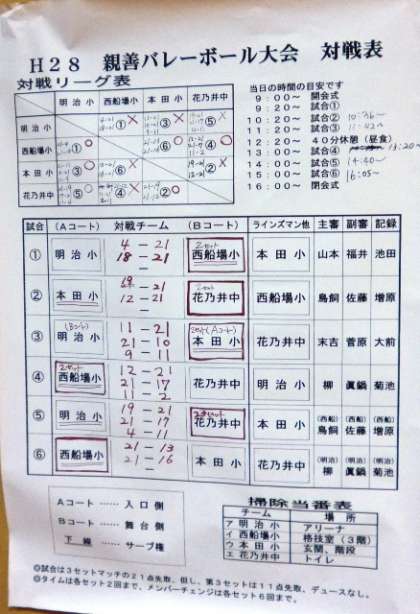 H28 親善バレーボール大会 対戦表
対戦リーグ表
明治小 西船場小 本田小 花乃井中
明治小 ① × ③ × ⑤ ×
西船場小 ① ○ ⑥ ○ ④ ○
本田小 ③ ○ ⑥ × ② ×
花乃井中 ⑤ ○ ④ × ② ○
当日の時間の目安です
9:00~ 開会式
9:20~ 試合①
10:20~ 試合②
11:20~ 試合③
12:20~ 40分休憩(昼食)
13:00~ 試合④ 13:20~
14:00~ 試合⑤ 14:40~
15:00~ 試合⑥ 16:05~
16:00~ 閉会式
試合 (Aコート) 対戦チーム (Bコート) ラインズマン他 主審 副審 記録
① 明治小 4-21 18-21 - 2セット 西船場小 本田小 山本 福井 池田
② 本田小 12-21 - 2セット 花乃井中 西船場小 鳥飼 佐藤 増原
③ (Bコート) 明治小 11-21 21-10 9-11 2セット(Aコート) 本田小 花乃井中 末吉 菅原 大前
④ 2セット 西船場小 12-21 21-17 11-2 花乃井中 明治小 柳 眞鍋 菊池
⑤ 明治小 19-21 21-17 4-11 2セット 花乃井中 本田小 (西船)鳥飼 (西船)佐藤 (西船)増原
⑥ 西船場小 21-13 21-16 - 本田小 花乃井中 (明治)柳 (明治)眞鍋 (明治)菊池
Aコート …… 入口側
Bコート …… 舞台側
下線 …… サーブ権
掃除当番表
チーム 場所
ア 明治小 アリーナ
イ 西船場小 格技室(3階)
ウ 本田小 玄関、階段
エ 花乃井中 トイレ
◎試合は3セットマッチの21点先取、但し、第3セットは11点先取、デュースなし。
◎タイムは各セット2回まで、メンバーチェンジは各セット6回まで。